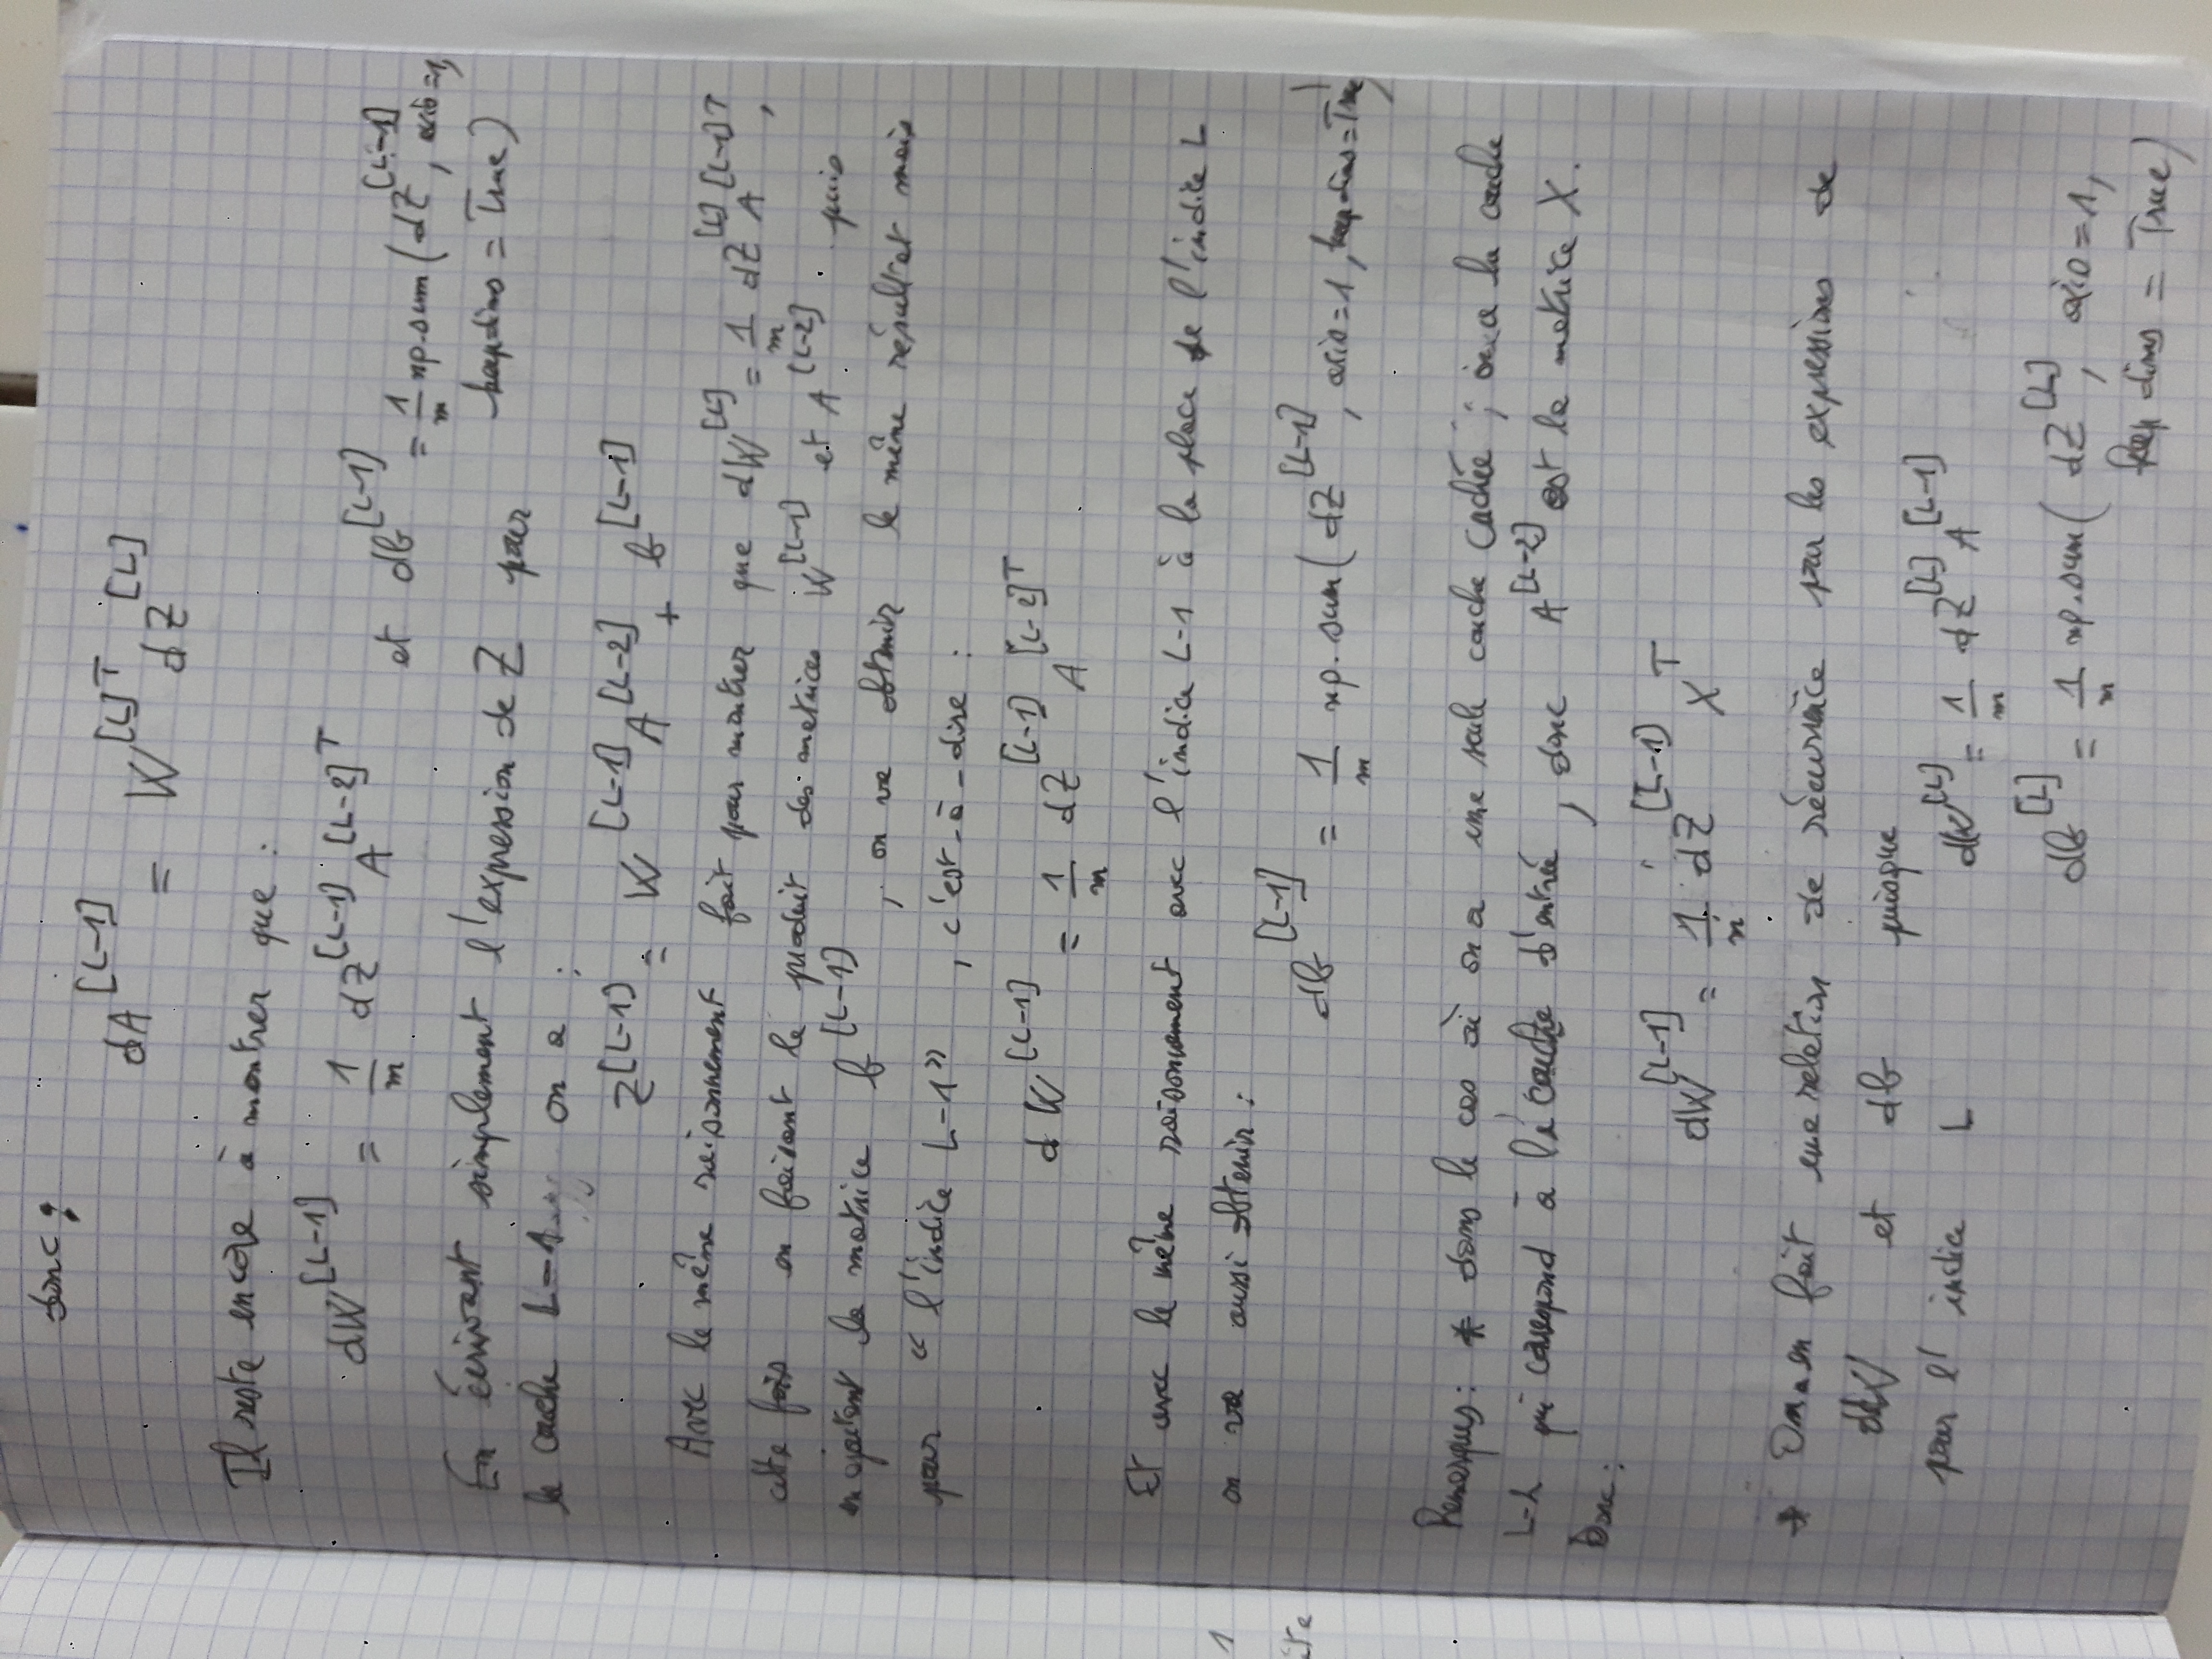 donc :
dA^[L-1] = W^[L]T dZ^[L]
Il reste encore à montrer que :
dW^[L-1] = 1/m dZ^[L-1] A^[L-2]T et db^[L-1] = 1/m np.sum( dZ^[L-1], axis=1,
keepdims = True)
En écrivant simplement l'expression de Z pour
la couche L-1 on a :
Z^[L-1] = W^[L-1] A^[L-2] + b^[L-1]
Avec le même raisonnement fait pour montrer que dW^[L] = 1/m dZ^[L] A^[L-1]T,
cette fois en faisant le produit des matrices W^[L-1] et A^[L-2]. puis
en ajoutant la matrice b^[L-1], on va obtenir le même résultat mais
pour « l'indice L-1 », c'est-à-dire :
dW^[L-1] = 1/m dZ^[L-1] A^[L-2]T
Et avec le même raisonnement avec l'indice L-1 à la place de l'indice L
on va aussi obtenir :
db^[L-1] = 1/m np.sum( dZ^[L-1], axis=1, keepdims=True)
Remarques : * dans le cas où on a une seule couche cachée ; on a la couche
L-2 qui correspond à la couche d'entrée, donc A^[L-2] est la matrice X.
Donc :
dW^[L-1] = 1/m dZ^[L-1] X^T
* On a en fait une relation de récurrence par les expressions de
dW et db puisque
pour l'indice L dW^[L] = 1/m dZ^[L] A^[L-1]
db^[L] = 1/m np.sum( dZ^[L], axis=1,
keepdims = True)
1